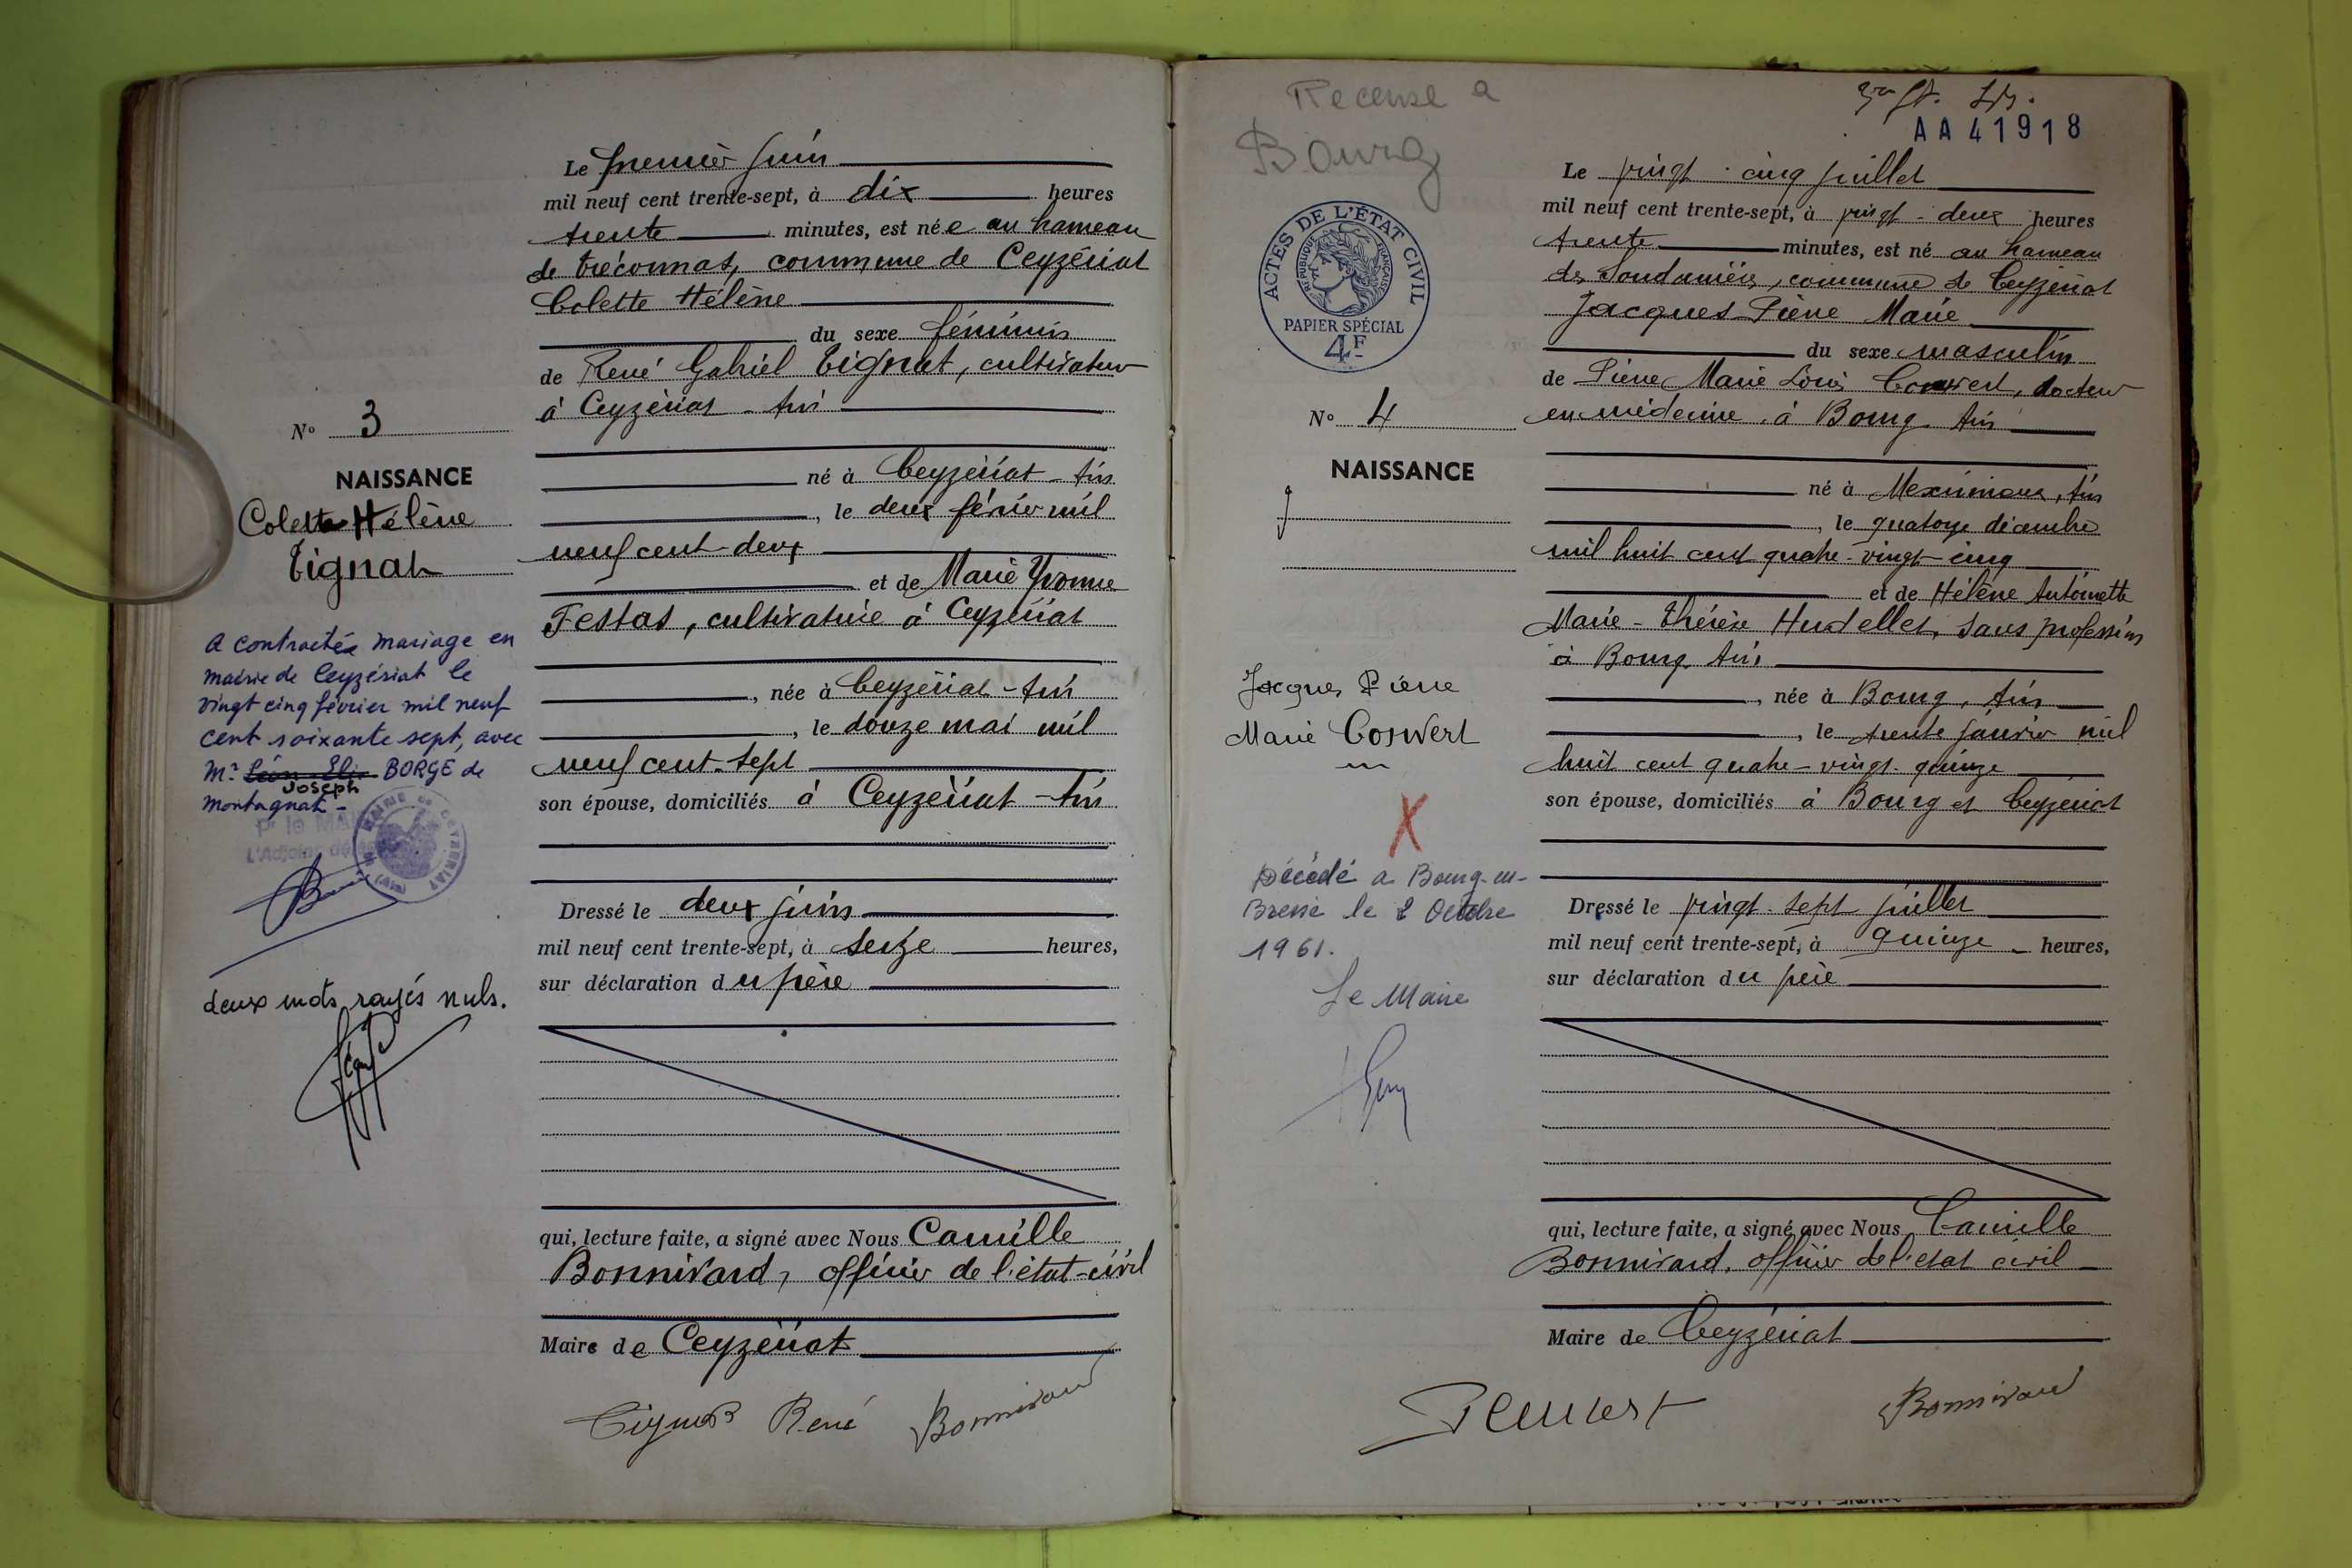 Le premier juin
mil neuf cent trente-sept, à dix heures
trente minutes, est née au hameau
de Tréconnas, commune de Ceyzériat
Colette Hélène
du sexe féminin
de René Gabriel Tignat, cultivateur
à Ceyzériat - Ain
né à Ceyzériat - Ain
, le deux février mil
neuf cent-deux
et de Marie Yvonne
Festas, cultivatrice à Ceyzériat
, née à Ceyzériat - Ain
, le douze mai mil
neuf cent-sept
son épouse, domiciliés à Ceyzériat - Ain
Dressé le deux juin
mil neuf cent trente-sept, à seize heures,
sur déclaration du père
qui, lecture faite, a signé avec Nous Camille
Bonnivard, officier de l'état-civil
Maire de Ceyzériat
Tignat René Bonnivard
N° 3
NAISSANCE
Colette Hélène
Tignat
a contracté mariage en
mairie de Ceyzériat le
vingt cinq février mil neuf
cent soixante sept, avec
Mr Léon Elie BORGE de
Joseph
Montagnat -
Pr le MAIRE
L'Adjoint dé
MAIRIE de CEYZERIAT (Ain)
deux mots rayés nuls.
Recensé à
Bourg
AA41918
ACTES DE L'ÉTAT CIVIL
RÉPUBLIQUE FRANÇAISE
PAPIER SPÉCIAL
4F
N° 4
NAISSANCE
Jacques Pierre
Marie Convert
X
Décédé à Bourg-en-
Bresse le 2 Octobre
1961.
Le Maire
Le vingt-cinq juillet
mil neuf cent trente-sept, à vingt-deux heures
trente minutes, est né au hameau
des Soudanières, commune de Ceyzériat
Jacques Pierre Marie
du sexe masculin
de Pierre Marie Louis Convert, docteur
en médecine, à Bourg Ain
né à Meximieux, Ain
, le quatorze décembre
mil huit cent quatre-vingt-cinq
et de Hélène Antoinette
Marie-Thérèse Hudellet, sans profession
à Bourg Ain
, née à Bourg, Ain
, le trente janvier mil
huit cent quatre-vingt-quinze
son épouse, domiciliés à Bourg et Ceyzériat
Dressé le vingt-sept juillet
mil neuf cent trente-sept, à quinze heures,
sur déclaration du père
qui, lecture faite, a signé avec Nous Camille
Bonnivard, officier de l'état civil
Maire de Ceyzériat
PConvert Bonnivard